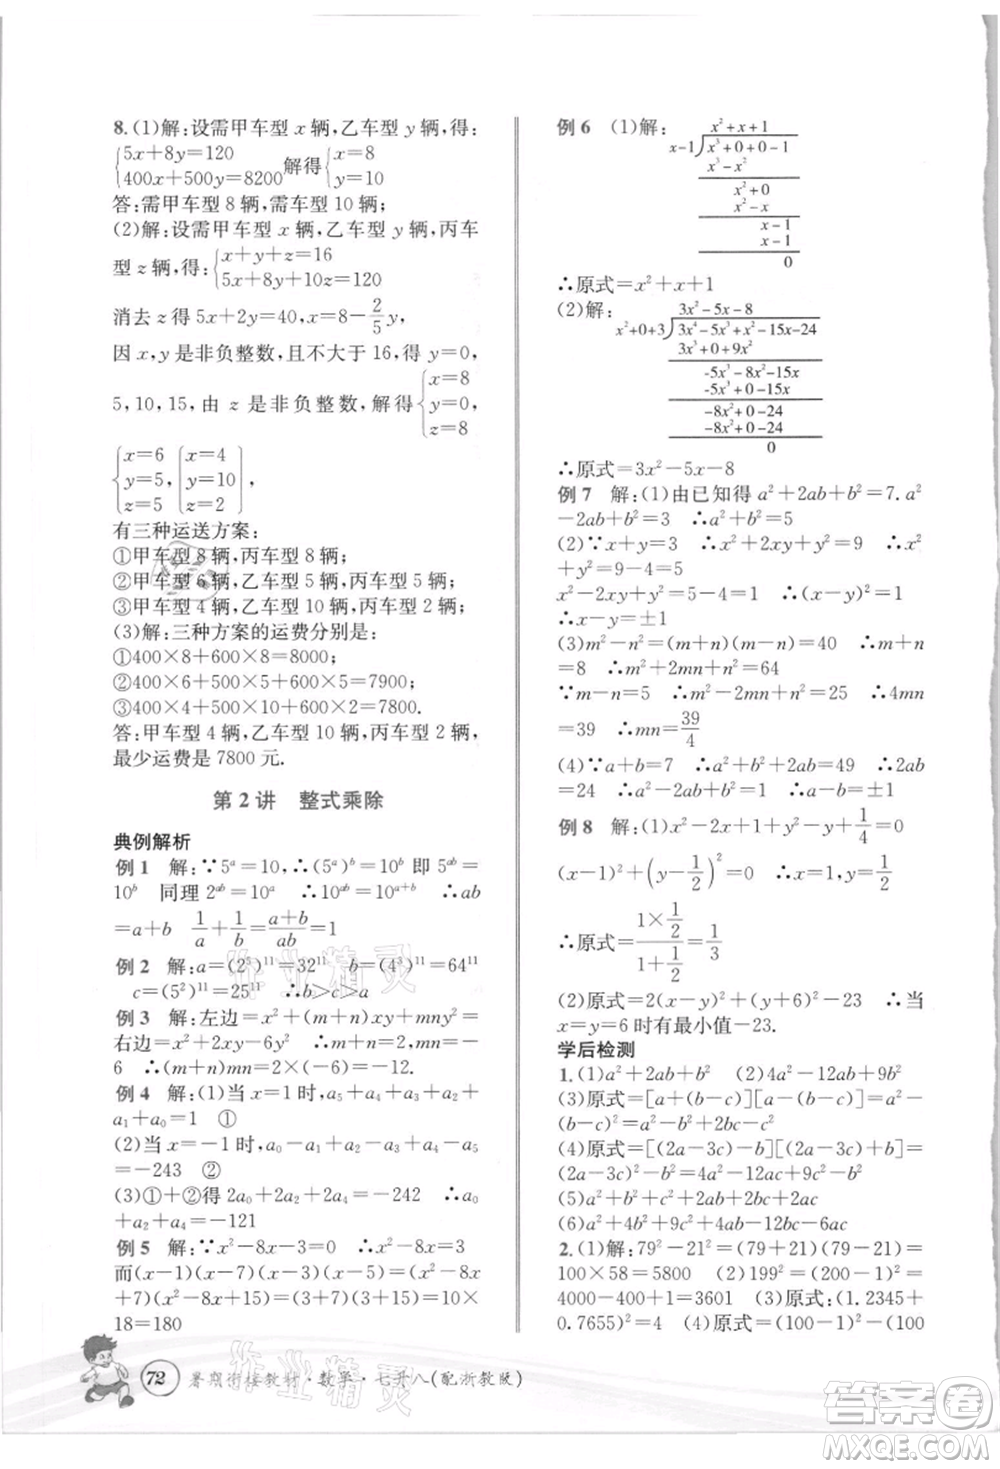 8.(1)解:设需甲车型 x 辆,乙车型 y 辆,得:
{5x+8y=120 400x+500y=8200 解得{x=8 y=10
答:需甲车型 8 辆,需车型 10 辆;
(2)解:设需甲车型 x 辆,乙车型 y 辆,丙车
型 z 辆,得:{x+y+z=16 5x+8y+10z=120
消去 z 得 5x+2y=40,x=8-2/5y,
因 x,y 是非负整数,且不大于 16,得 y=0,
5,10,15,由 z 是非负整数,解得{x=8 y=0, z=8
{x=6 y=5, z=5 {x=4 y=10, z=2
有三种运送方案:
①甲车型 8 辆,丙车型 8 辆;
②甲车型 6 辆,乙车型 5 辆,丙车型 5 辆;
③甲车型 4 辆,乙车型 10 辆,丙车型 2 辆;
(3)解:三种方案的运费分别是:
①400×8+600×8=8000;
②400×6+500×5+600×5=7900;
③400×4+500×10+600×2=7800.
答:甲车型 4 辆,乙车型 10 辆,丙车型 2 辆,
最少运费是 7800 元.
第 2 讲 整式乘除
典例解析
例 1 解:∵5ᵃ=10,∴(5ᵃ)ᵇ=10ᵇ 即 5ᵃᵇ=
10ᵇ 同理 2ᵃᵇ=10ᵃ ∴10ᵃᵇ=10ᵃ⁺ᵇ ∴ab
=a+b 1/a+1/b=(a+b)/ab=1
例 2 解:a=(2⁵)¹¹=32¹¹ b=(4³)¹¹=64¹¹
c=(5²)¹¹=25¹¹ ∴b>c>a
例 3 解:左边=x²+(m+n)xy+mny²=
右边=x²+2xy-6y² ∴m+n=2,mn=-
6 ∴(m+n)mn=2×(-6)=-12.
例 4 解:(1)当 x=1 时,a₅+a₄+a₃+a₂+
a₁+a₀=1 ①
(2)当 x=-1 时,a₀-a₁+a₂-a₃+a₄-a₅
=-243 ②
(3)①+②得 2a₀+2a₂+2a₄=-242 ∴a₀
+a₂+a₄=-121
例 5 解:∵x²-8x-3=0 ∴x²-8x=3
而(x-1)(x-3)(x-5)(x-7)=(x²-8x
+7)(x²-8x+15)=(3+7)(3+15)=10×
18=180
72 暑期衔接教材·数学·七升八(配浙教版)
例 6 (1)解: x²+x+1
x-1 x³+0+0-1
x³-x²
x²+0
x²-x
x-1
x-1
0
∴原式=x²+x+1
(2)解: 3x²-5x-8
x²+0+3 3x⁴-5x³+x²-15x-24
3x⁴+0+9x²
-5x³-8x²-15x
-5x³+0-15x
-8x²+0-24
-8x²+0-24
0
∴原式=3x²-5x-8
例 7 解:(1)由已知得 a²+2ab+b²=7.a²
-2ab+b²=3 ∴a²+b²=5
(2)∵x+y=3 ∴x²+2xy+y²=9 ∴x²
+y²=9-4=5
x²-2xy+y²=5-4=1 ∴(x-y)²=1
∴x-y=±1
(3)m²-n²=(m+n)(m-n)=40 ∴m+n
=8 ∴m²+2mn+n²=64
∵m-n=5 ∴m²-2mn+n²=25 ∴4mn
=39 ∴mn=39/4
(4)∵a²+b²+2ab=49 ∴2ab=24
∴a²+b²-2ab=1 ∴a-b=±1
例 8 解:(1)x²-2x+1+y²-y+1/4=0
(x-1)²+(y-1/2)²=0 ∴x=1,y=1/2
∴原式=(1×1/2)/(1+1/2)=1/3
(2)原式=2(x-6)²+(x-y)²-23 ∴当
x=y=6 时有最小值-23.
学后检测
1.(1)a²+2ab+b² (2)4a²-12ab+9b²
(3)原式=[a+(b-c)][a-(b-c)]=a²-
(b-c)²=a²-b²+2bc-c²
(4)原式=[(2a-3c)-b][(2a-3c)+b]=
(2a-3c)²-b²=4a²-12ac+9c²-b²
(5)a²+b²+c²-2ab-2bc+2ac
(6)4x²+y²+z²-4xy-4xz+2yz
2.(1)解:79²-21²=(79+21)(79-21)=
100×58=5800 (2)199²=(200-1)²=
4000-400+1=3601 (3)原式:(1.2345+
0.7655)²=4 (4)原式=(100-1)²-(100
作业精灵
作业精灵
答案圈
MXQE.COM